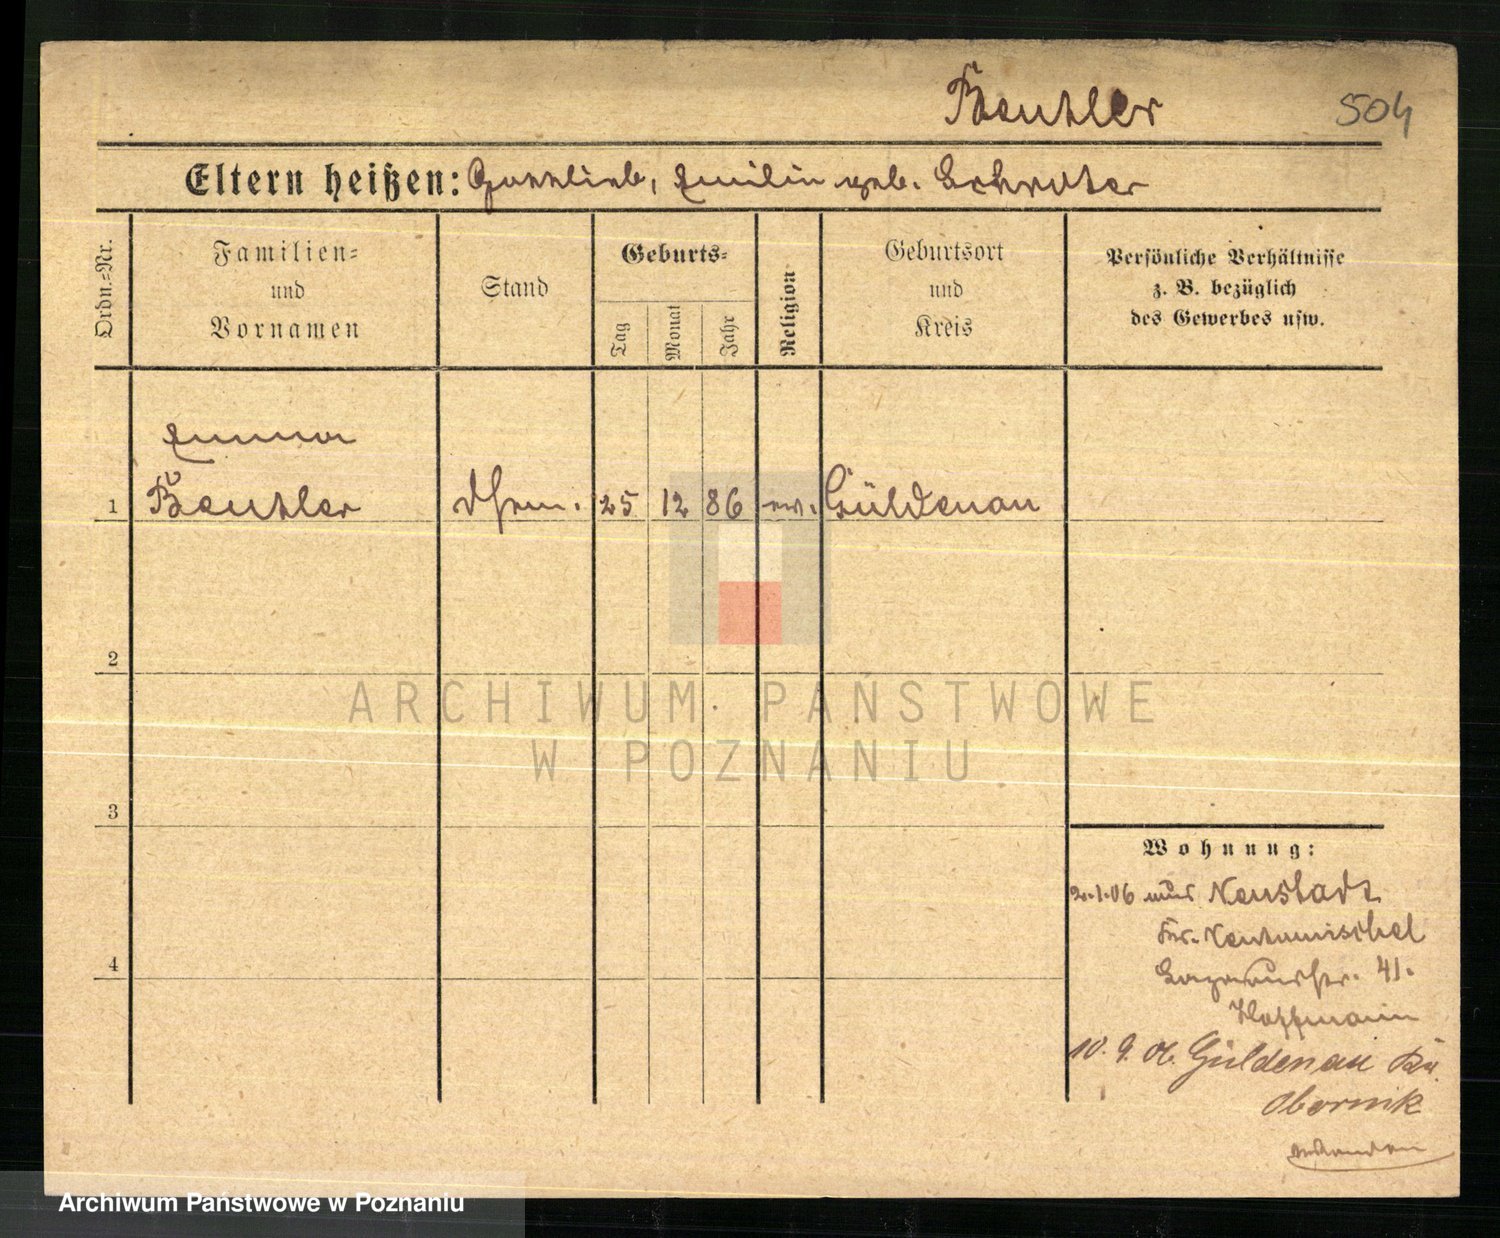 Beutler 504
Eltern heißen: Gottlieb, Emilie geb. Schröter
Ordn.-Nr.
Familien-
und
Vornamen
Stand
Geburts-
Tag
Monat
Jahr
Religion
Geburtsort
und
Kreis
Persönliche Verhältnisse
z. B. bezüglich
des Gewerbes usw.
Emma
1 Beutler 25 12 86 ev. Güldenau
2
ARCHIWUM PAŃSTWOWE
W POZNANIU
3
Wohnung:
2.1.06 aus Neustadt
Kr. Neutomischel
41.
Hoffmann
4
10. 9. 06. Güldenau Kr.
Obornik
Archiwum Państwowe w Poznaniu